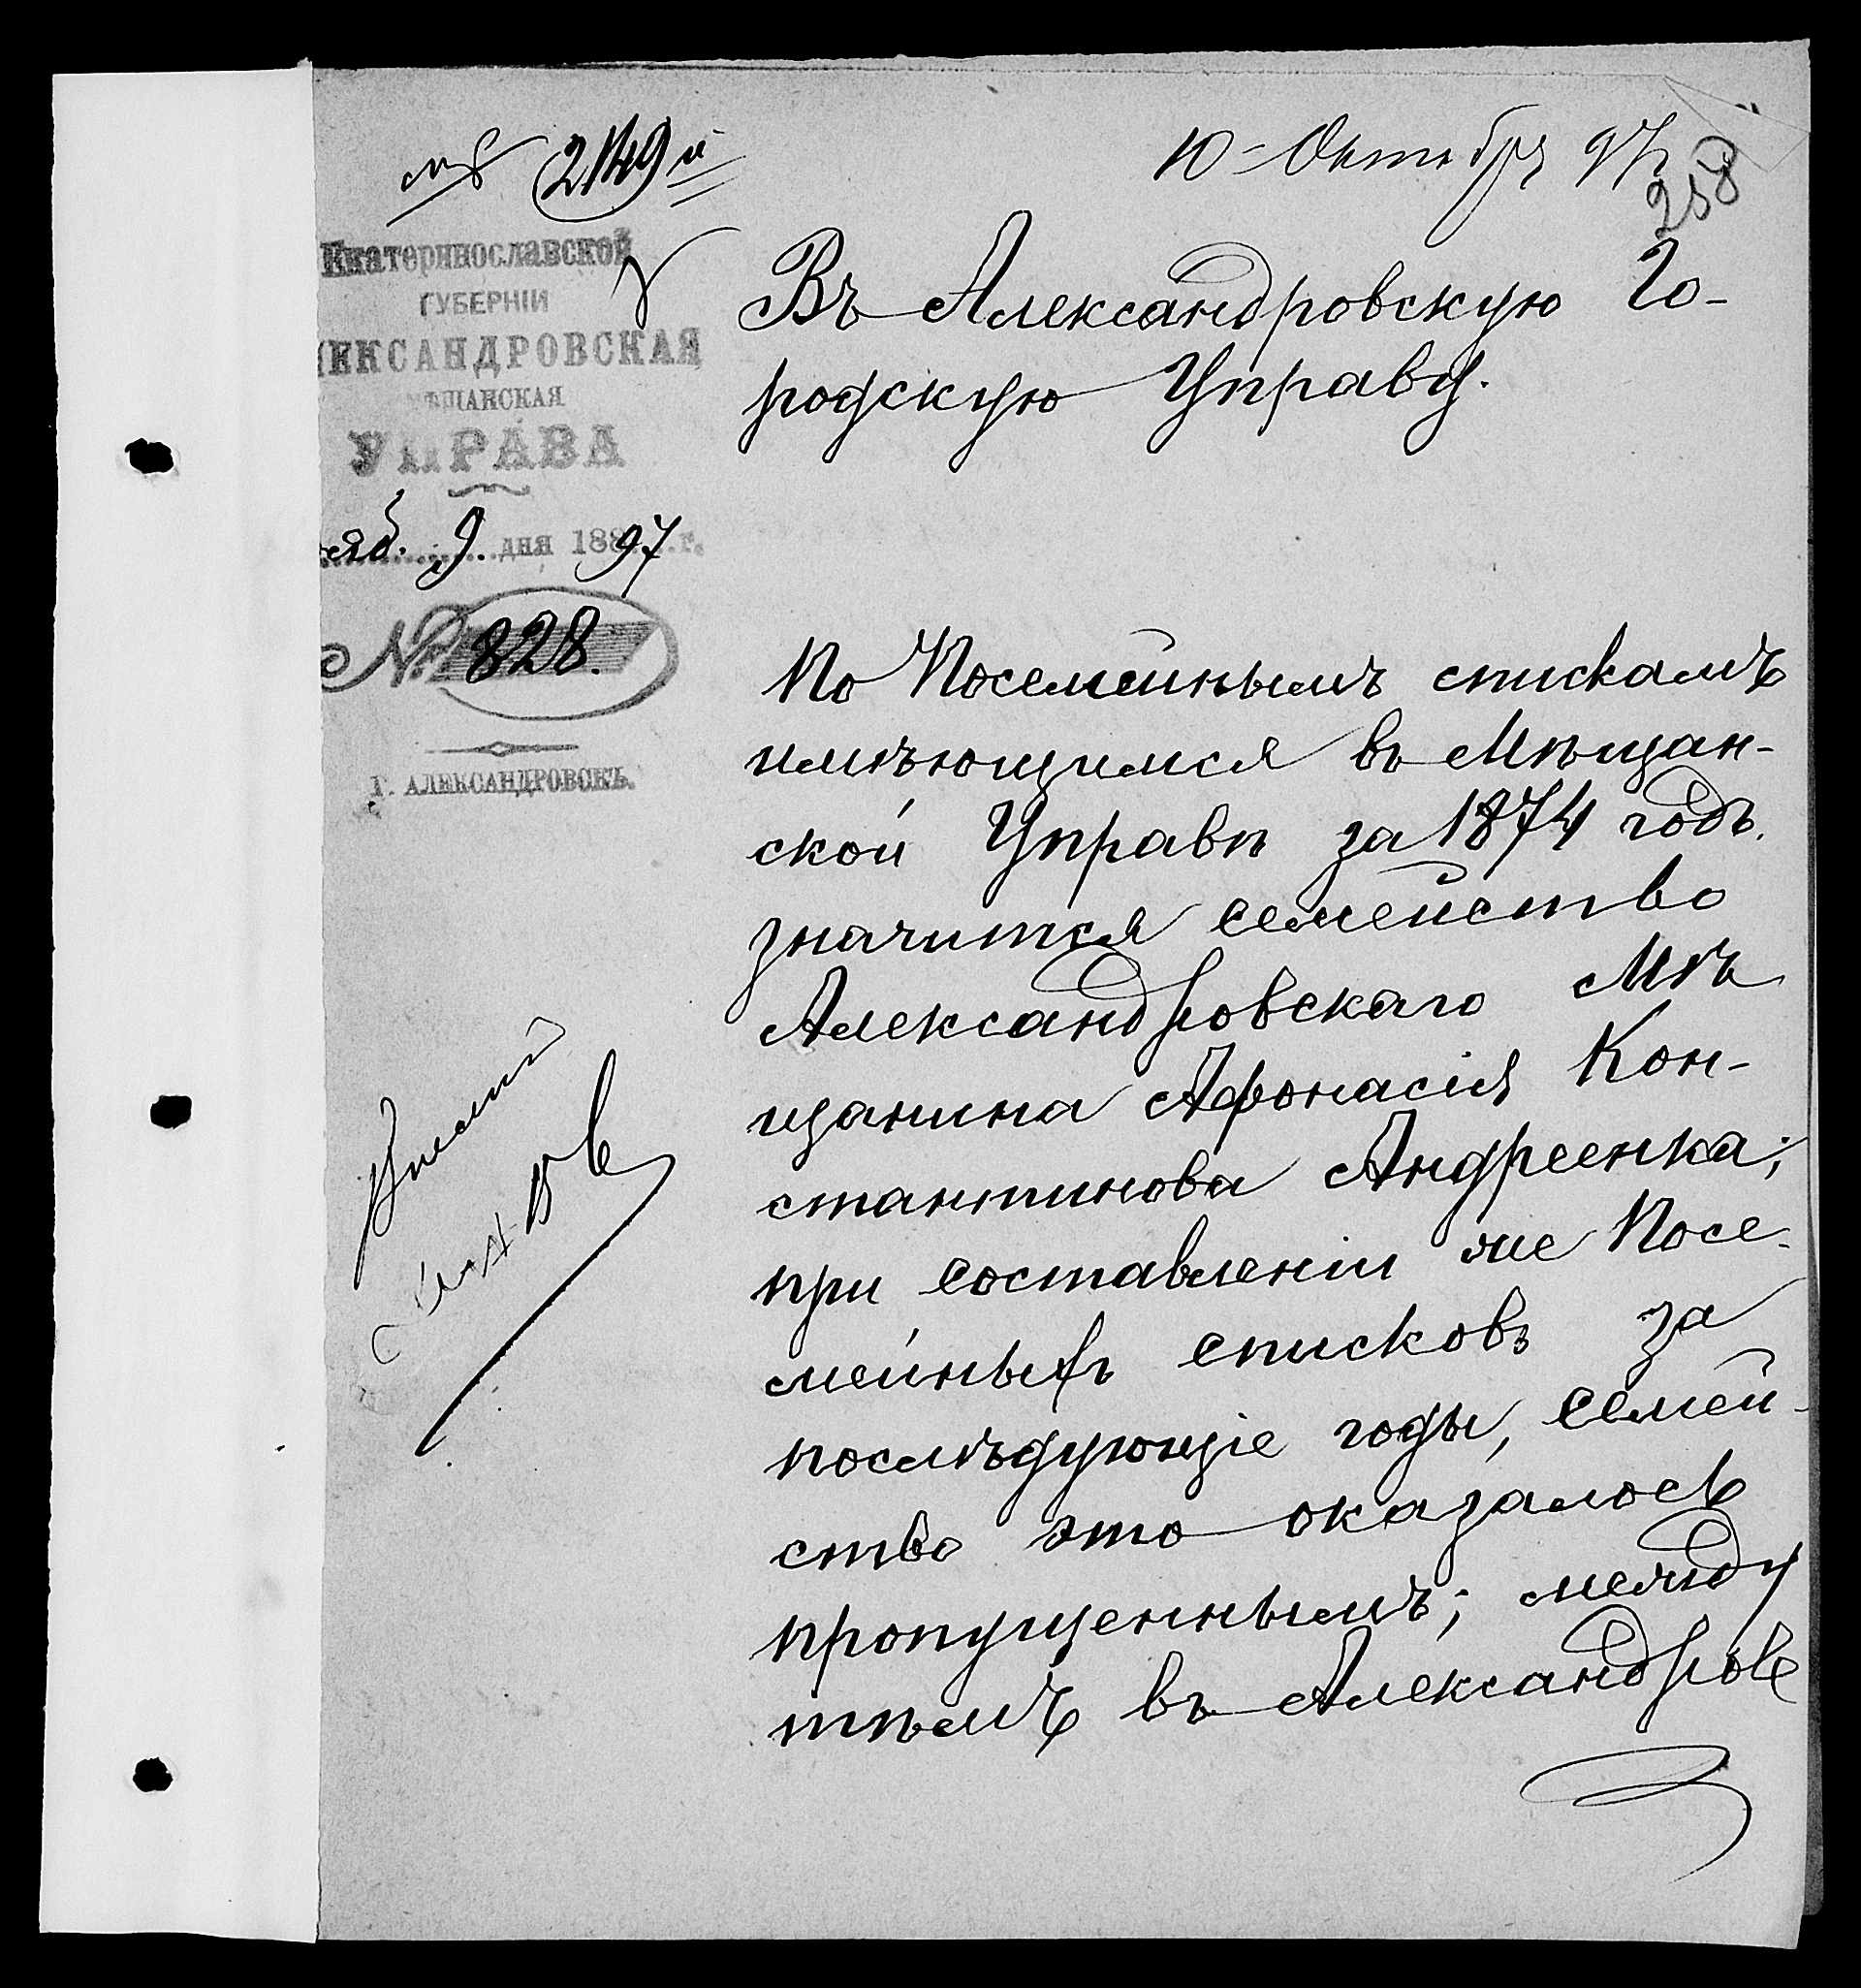 2149й
10 Октября 97 г
258
Екатеринославской
ГУБЕРНІИ
ЛЕКСАНДРОВСКАЯ
ѢЩАНСКАЯ
УПРАВА
яб. 9. дня 188 97 г.
№ 828.
Г. АЛЕКСАНДРОВСКЪ.
Въ Александровскую Го-
родскую Управу.
По Посемейнымъ спискамъ
имѣющимся въ Мѣщан-
ской Управѣ за 1874 годъ.
значится семейство
Александровскаго Мѣ
щанина Афонасія Кон-
стантинова Андреенка;
при составленіи же Посе-
мейныхъ списковъ за
послѣдующіе годы, семей-
ство это оказалось
пропущеннымъ; между
тѣмъ въ Александров